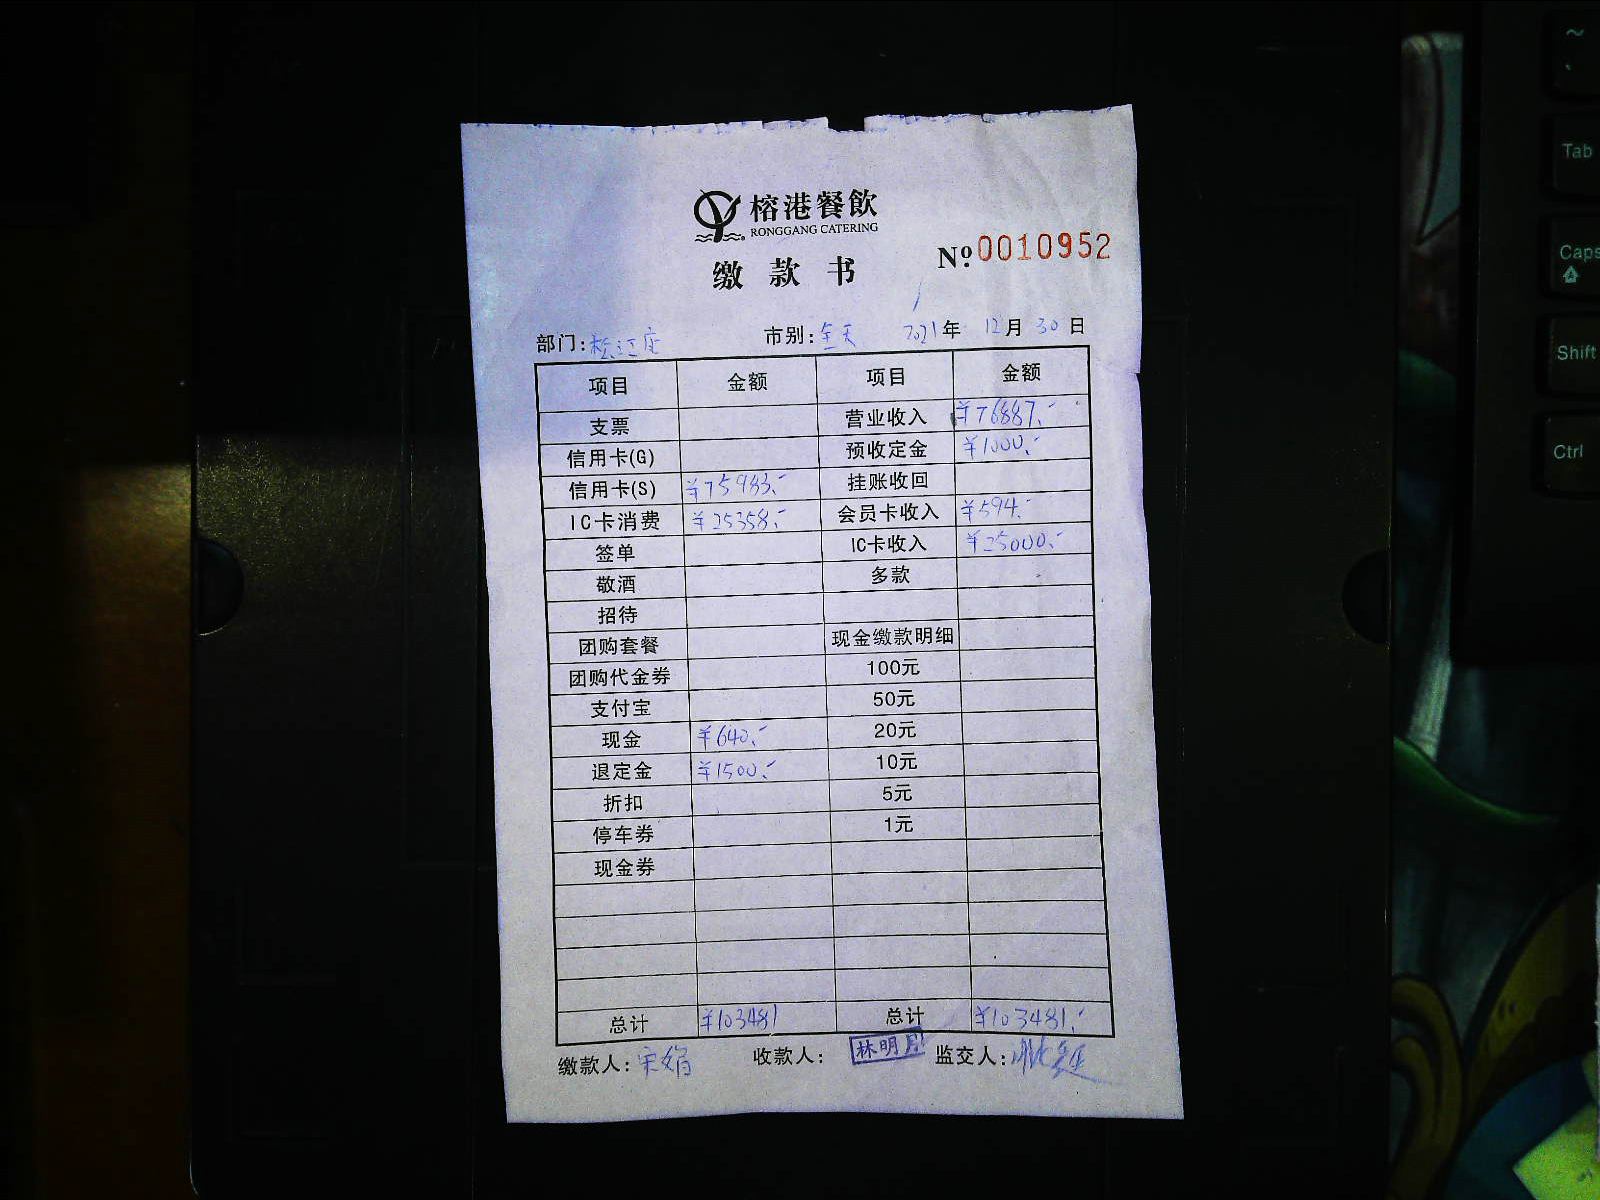 榕港餐飲
RONGGANG CATERING
缴款书
№ 0010952
部门:松江店 市别:全天 2021年 12月 30日
项目 金额 项目 金额
支票 营业收入 ¥76887.-
信用卡(G) 预收定金 ¥1000.-
信用卡(S) ¥75983.- 挂账收回
IC卡消费 ¥25358.- 会员卡收入 ¥594.-
签单 IC卡收入 ¥25000.-
敬酒 多款
招待
团购套餐 现金缴款明细
团购代金券 100元
支付宝 50元
现金 ¥640.- 20元
退定金 ¥1500.- 10元
折扣 5元
停车券 1元
现金券
总计 ¥103481 总计 ¥103481.-
缴款人:宋娟 收款人: 林明月 监交人:
~
Tab
Caps
Shift
Ctrl